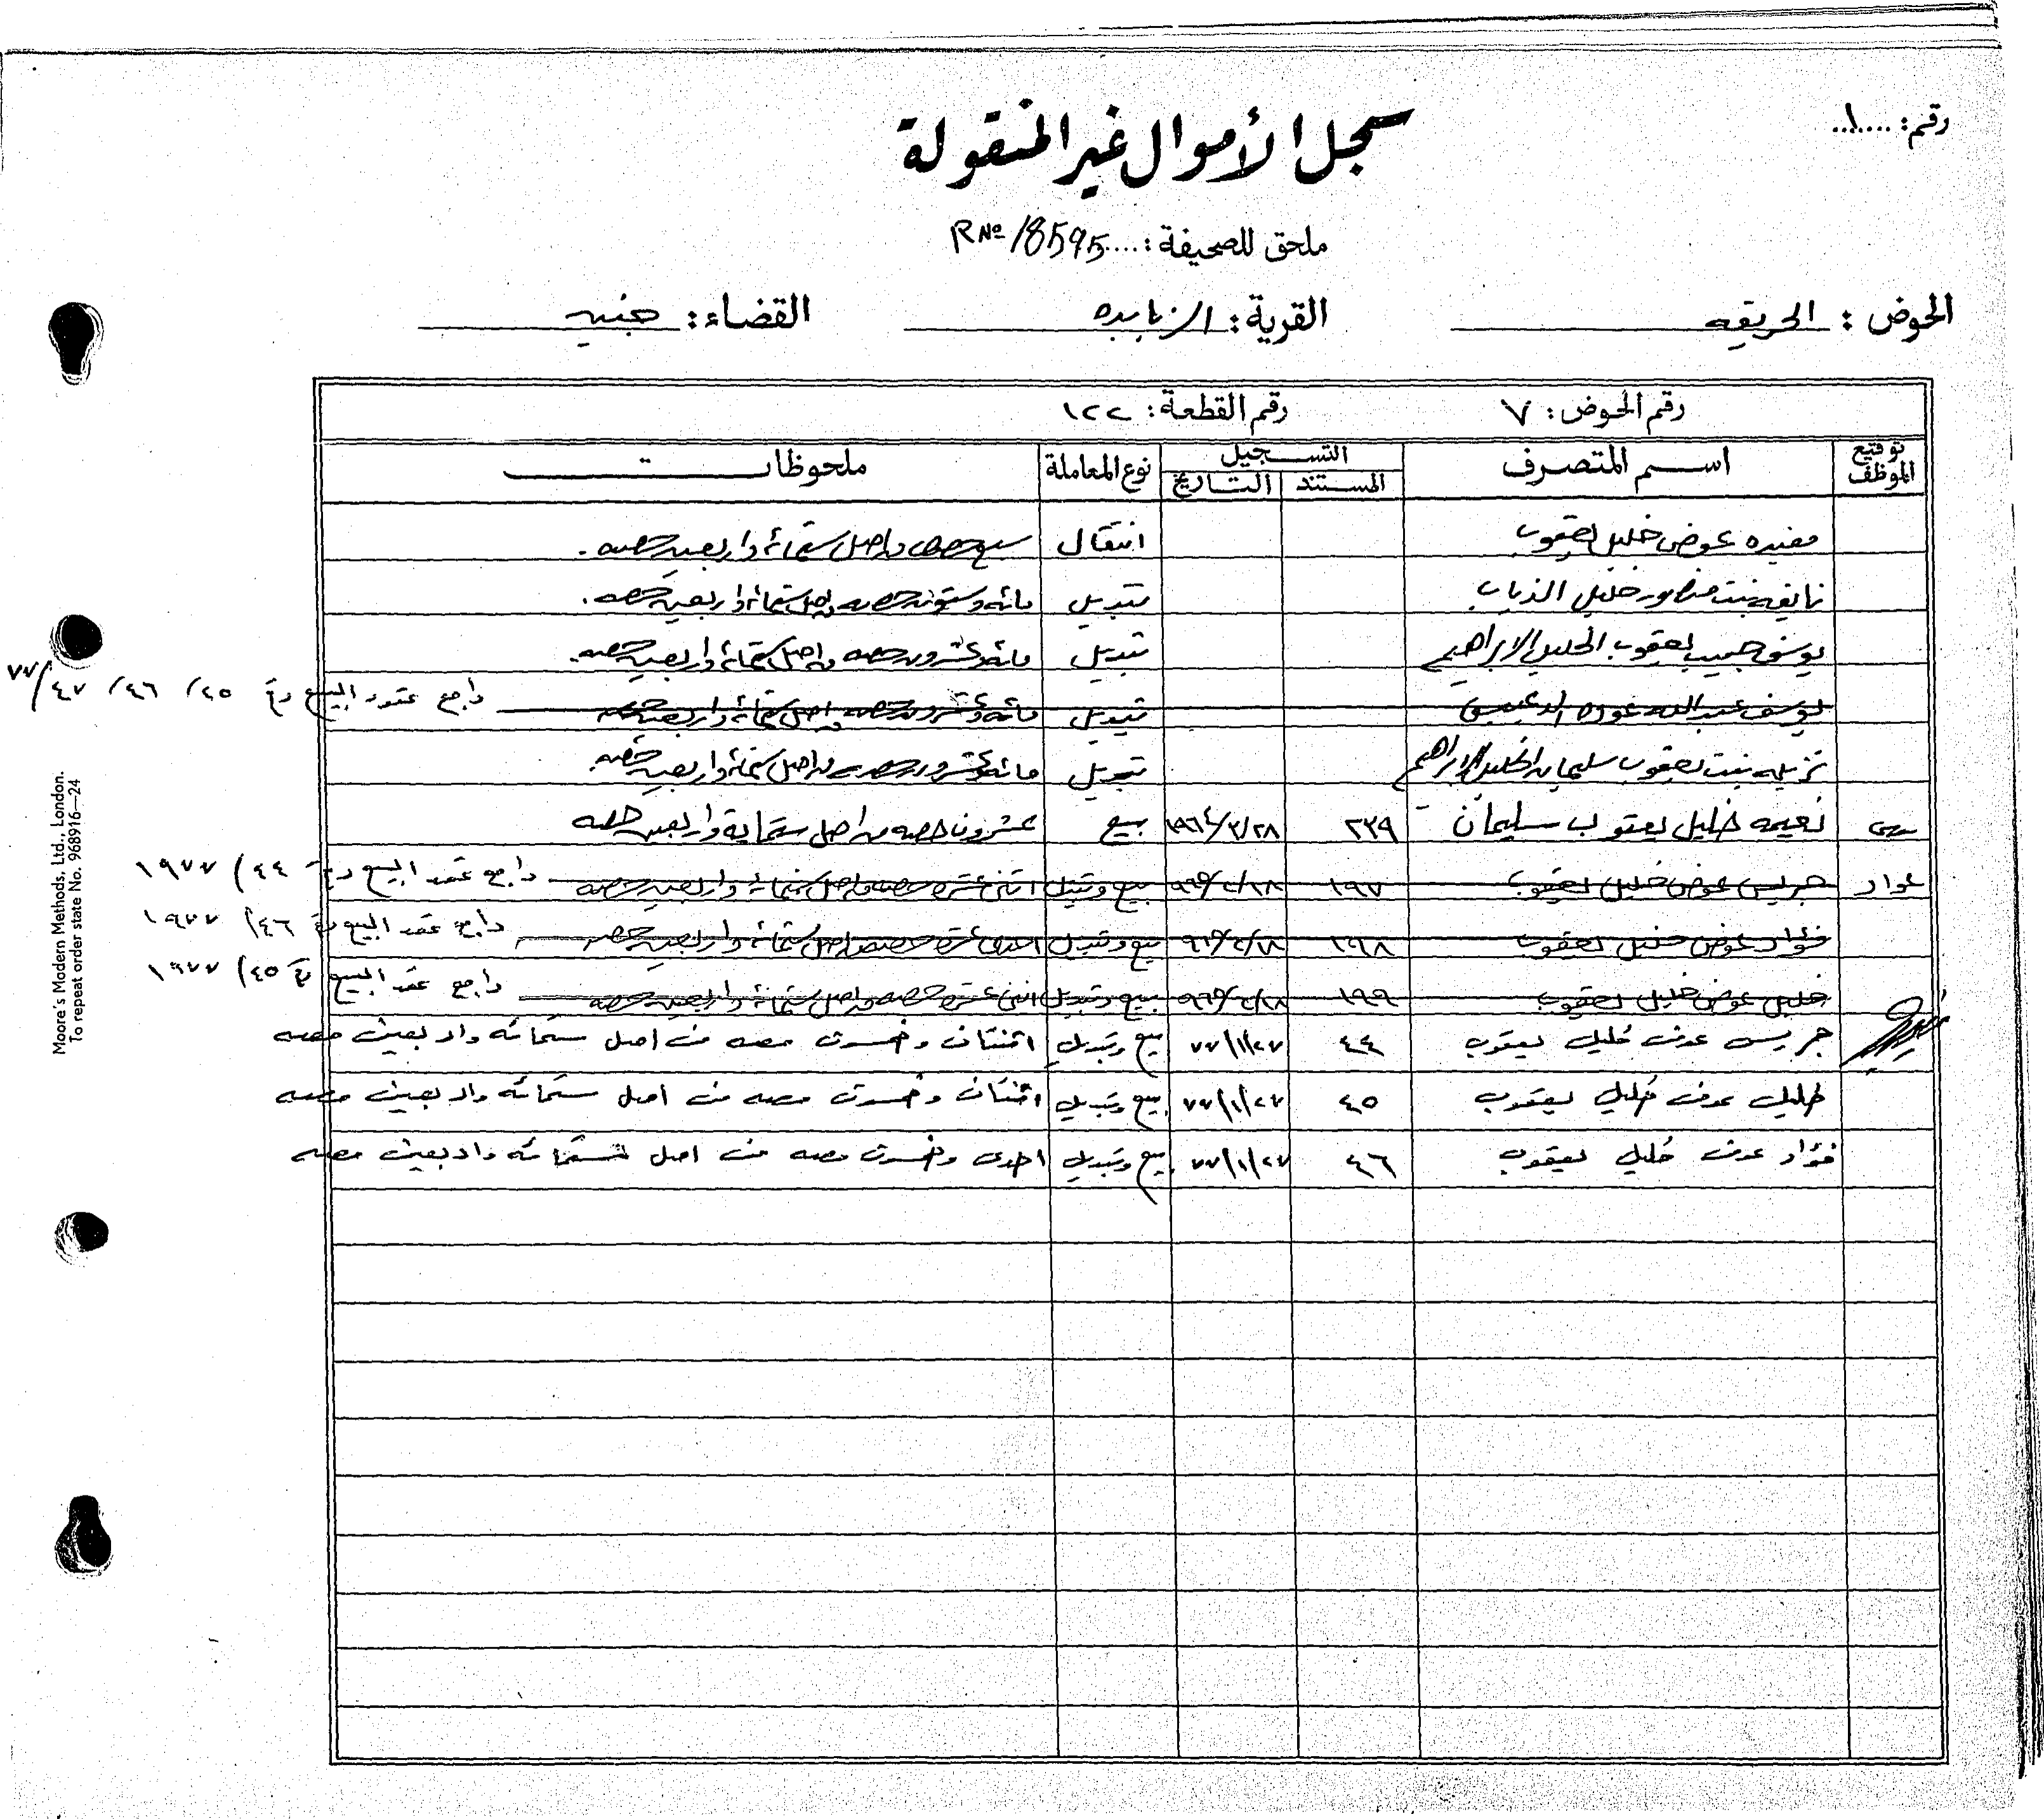 رقم: ....١....
سجل الأموال غير المنقولة
ملحق للصحيفة: .... R Nº 18595
الحوض : الحريقه القرية: الزبابده القضاء: جنين
رقم الحوض: ٧ رقم القطعة: ١٢٢
توقيع الموظف اسم المتصرف التسجيل نوع المعاملة ملحوظات
المستند التاريخ
مفيده عوض خليل يعقوب انتقال سبع حصص من اصل ستمائة واربعين حصه .
نايفه بنت منصور خليل الذياب تبديل مائه وستون حصه من اصل ستمائة واربعين حصه .
يوسف حبيب يعقوب الخليل الابراهيم تبديل مائه وعشرون حصه من اصل ستمائة واربعين حصه .
يوسف عبدالله عوده الدعيبس تبديل مائه وعشرون حصه من اصل ستمائة واربعين حصه راجع عقود البيع رقم ٤٥/ ٤٦/ ٤٧/٧٧
نزيله بنت يعقوب سليمان الخليل الابراهيم تبديل مائه وعشرون حصه من اصل ستمائة واربعين حصه
نعيمه خليل يعقوب سليمان ٢٣٩ ١٩٦٤/٣/٢٨ بيع عشرون حصه من اصل ستماية واربعين حصه
عواد جريس عوض خليل يعقوب ١٩٧ بيع وتبديل اثنى عشرة حصه من اصل ستمائة واربعين حصه راجع عقد البيع رقم ٤٤/ ١٩٧٧
فؤاد عوض خليل يعقوب ١٩٨ بيع وتبديل احدى عشرة حصه من اصل ستمائة واربعين حصه راجع عقد البيع رقم ٤٦/ ١٩٧٧
خليل عوض خليل يعقوب ١٩٩ بيع وتبديل اثنى عشرة حصه من اصل ستمائة واربعين حصه راجع عقد البيع رقم ٤٥/ ١٩٧٧
جريس عوض خليل يعقوب ٤٤ ٧٧/١/٢٧ بيع وتبديل اثنتان وخمسون حصه من اصل ستمائه واربعين حصه
خليل عوض خليل يعقوب ٤٥ ٧٧/١/٢٧ بيع وتبديل اثنتان وخمسون حصه من اصل ستمائه واربعين حصه
فؤاد عوض خليل يعقوب ٤٦ ٧٧/١/٢٧ بيع وتبديل احدى وخمسون حصه من اصل ستمائه واربعين حصه
Moore's Modern Methods, Ltd., London.
To repeat order state No. 968916—24